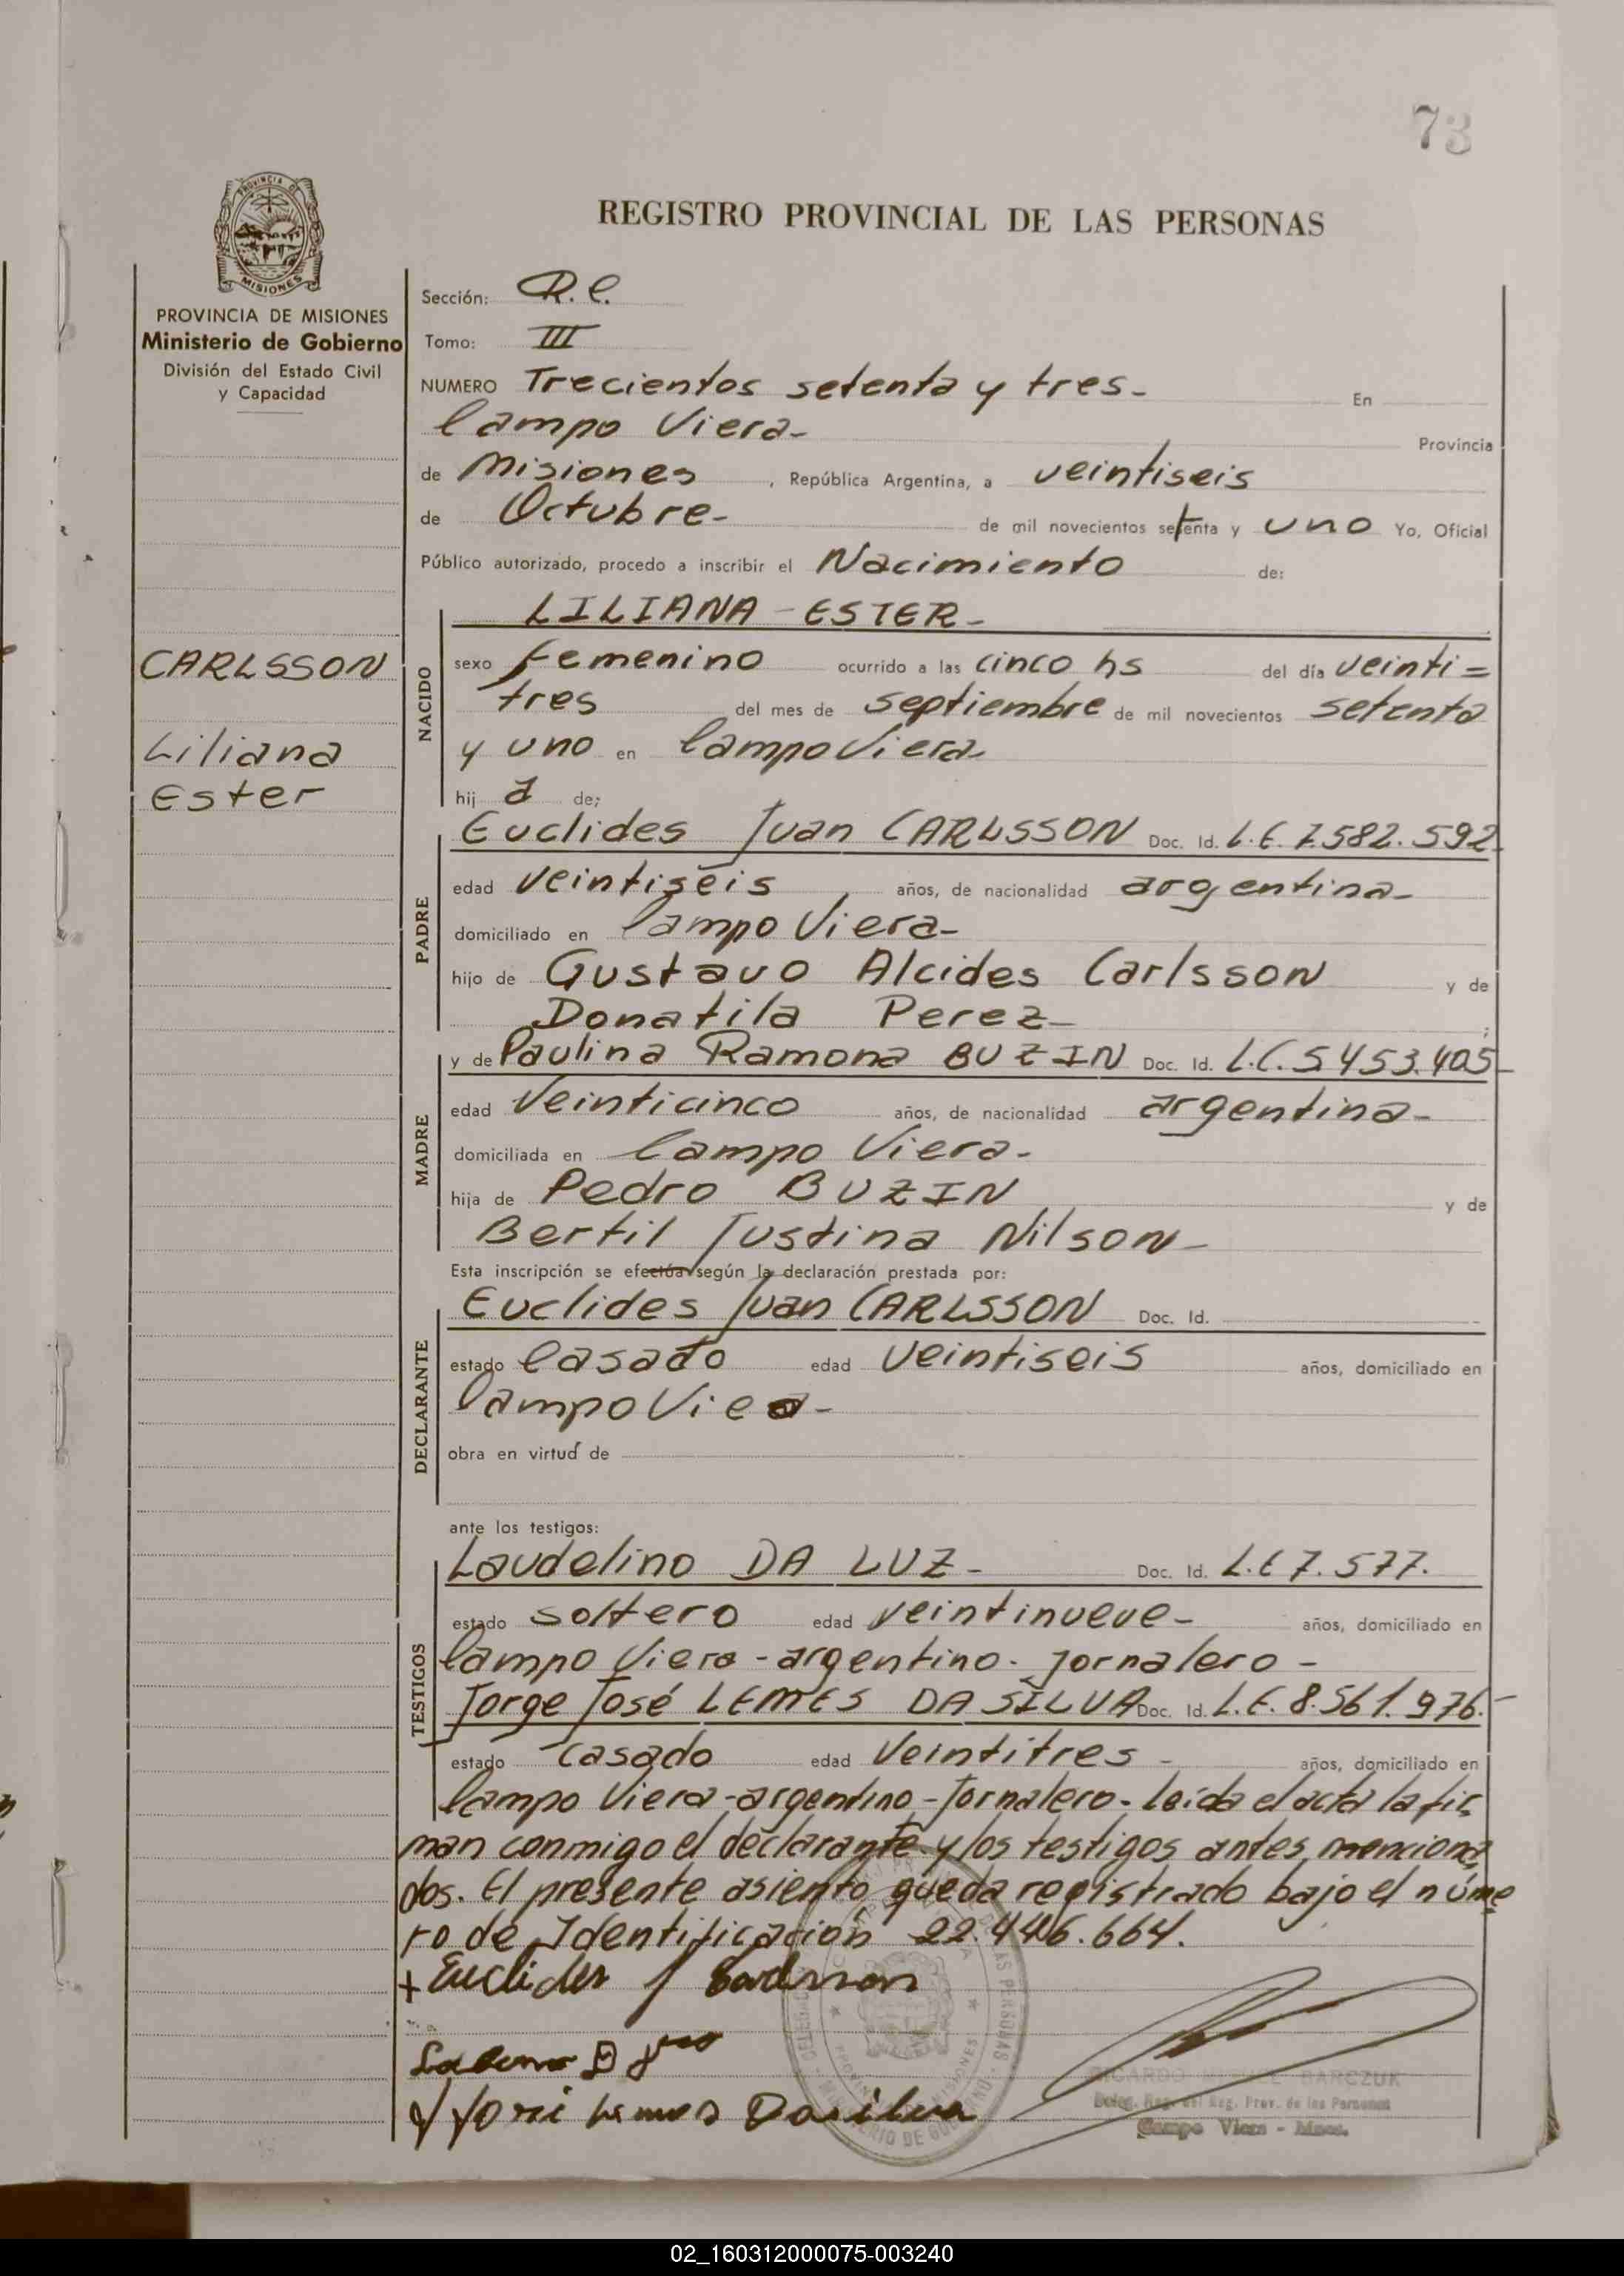 73
REGISTRO PROVINCIAL DE LAS PERSONAS
PROVINCIA DE MISIONES
PROVINCIA DE MISIONES
Ministerio de Gobierno
División del Estado Civil
y Capacidad
CARLSSON
Liliana
Ester
Sección: R.C.
Tomo: III
NUMERO Trecientos setenta y tres- En
Campo Viera- Provincia
de Misiones, República Argentina, a veintiseis
de Octubre- de mil novecientos setenta y uno Yo, Oficial
Público autorizado, procedo a inscribir el Nacimiento de:
LILIANA - ESTER-
NACIDO
sexo femenino ocurrido a las cinco hs del día veinti=
tres del mes de septiembre de mil novecientos setenta
y uno en Campo Viera
hij a de;
PADRE
Euclides Juan CARLSSON Doc. Id. L.E. 7.582.592
edad veintiseis años, de nacionalidad argentina-
domiciliado en Campo Viera-
hijo de Gustavo Alcides Carlsson y de
Donatila Perez- ;
MADRE
y de Paulina Ramona BUZIN Doc. Id. L.C. 5453.405-
edad Veinticinco años, de nacionalidad argentina-
domiciliada en Campo Viera-
hija de Pedro BUZIN y de
Bertil Justina Nilson-
Esta inscripción se efectúa según la declaración prestada por:
DECLARANTE
Euclides Juan CARLSSON Doc. Id.
estado Casado edad veintiseis años, domiciliado en
Campo Viea-
obra en virtud de
ante los testigos:
TESTIGOS
Laudelino DA LUZ- Doc. Id. L.E 7.577.
estado soltero edad veintinueve- años, domiciliado en
Campo Viera - argentino- jornalero-
Jorge José LEMES DA SILVA Doc. Id. L.E. 8.561.976.-
estado Casado edad Veintitres- años, domiciliado en
Campo Viera-argentino-Jornalero- leida el acta la fir
man conmigo el declarante y los testigos antes menciona
dos. El presente asiento queda registrado bajo el núme
ro de Identificación 22.446.664.
+ Euclides J Carlsson
Da Silva
RICARDO BARCZUK
Deleg. Reg. del Reg. Prov. de las Personas
Campo Viera - Mnes.
02_160312000075-003240